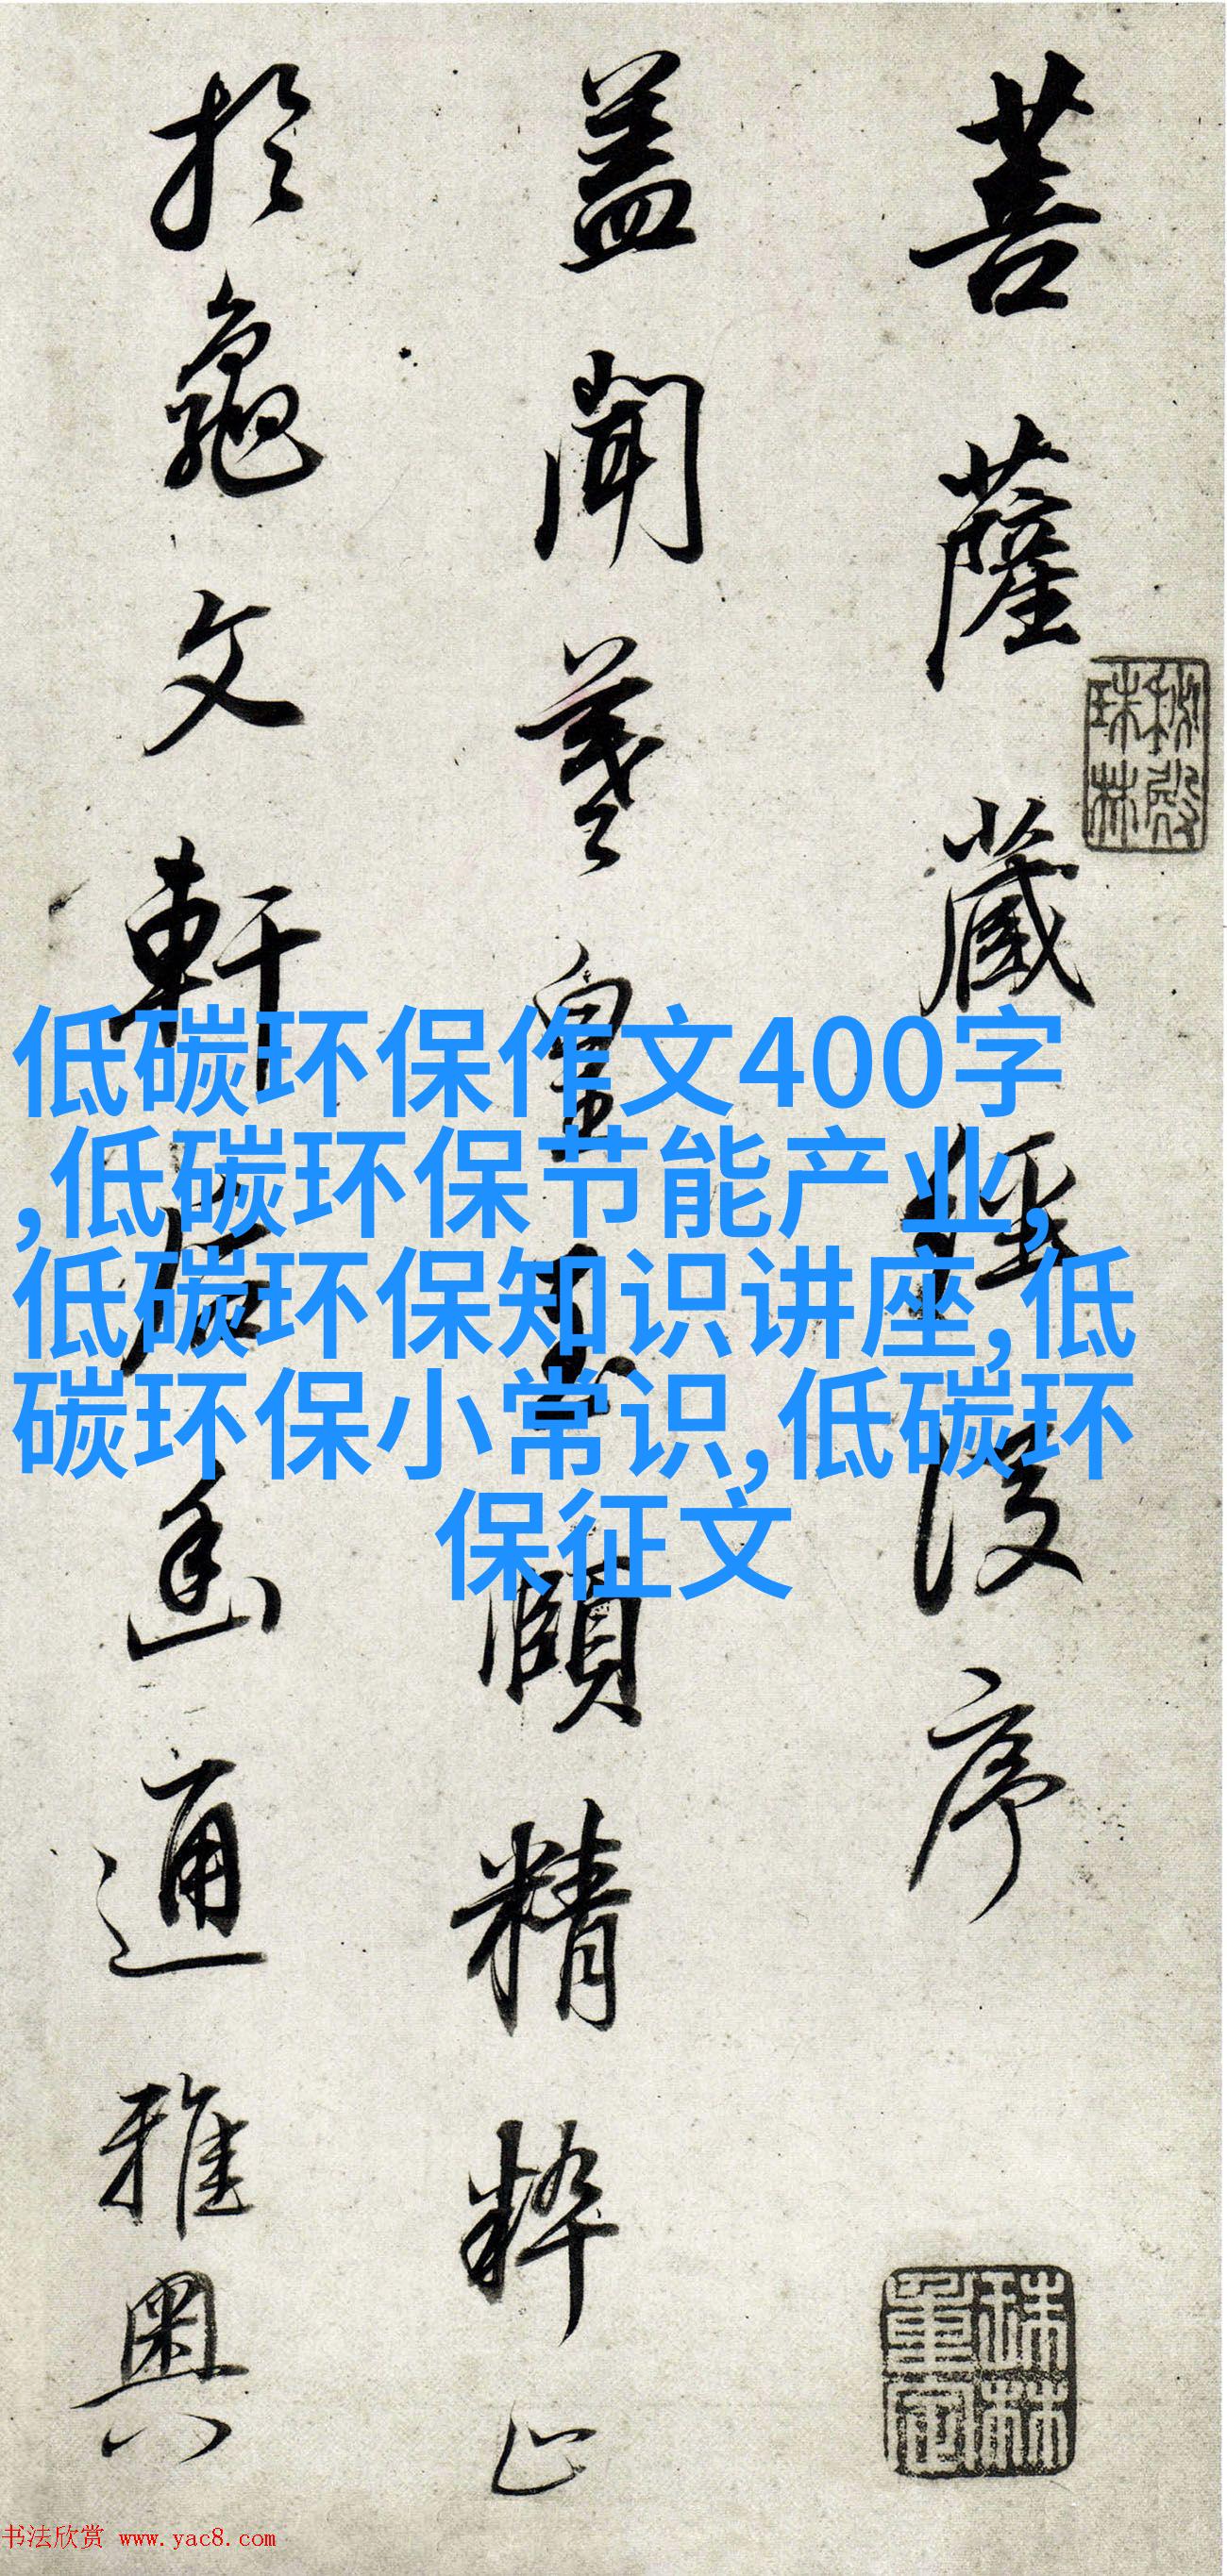 菩薩蔵經後序
蓋聞羲皇至賾精粹止
於龜文軒后幽通雅奧
低碳环保作文400字
,低碳环保节能产业,
低碳环保知识讲座,低
碳环保小常识,低碳环
保征文
秘殿
珠林
珠林
重定
书法欣赏 www.yac8.com